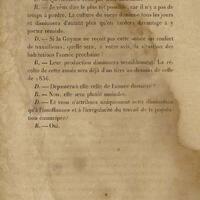 R. — Je crois dire le plus tôt possible, car il n'y a pas de
temps à perdre. La culture du sucre diminue tous les jours
et diminuera d'autant plus qu'on tardera davantage à y
porter remède.
D. — Si la Guyane ne reçoit pas cette année un renfort
de travailleurs, quelle sera, à votre avis, la situation des
habitations l'année prochaine ?
R. — Leur production diminuera sensiblement. La ré-
colte de cette année sera déjà d'un tiers au-dessous de celle
de 1856.
D. — Dépassera-t-elle celle de l'année dernière ?
R. — Non, elle sera plutôt moindre.
D. — Et vous n'attribuez uniquement cette diminution
qu'à l'insuffisance et à l'irrégularité du travail de la popula-
tion émancipée ?
R. — Oui.